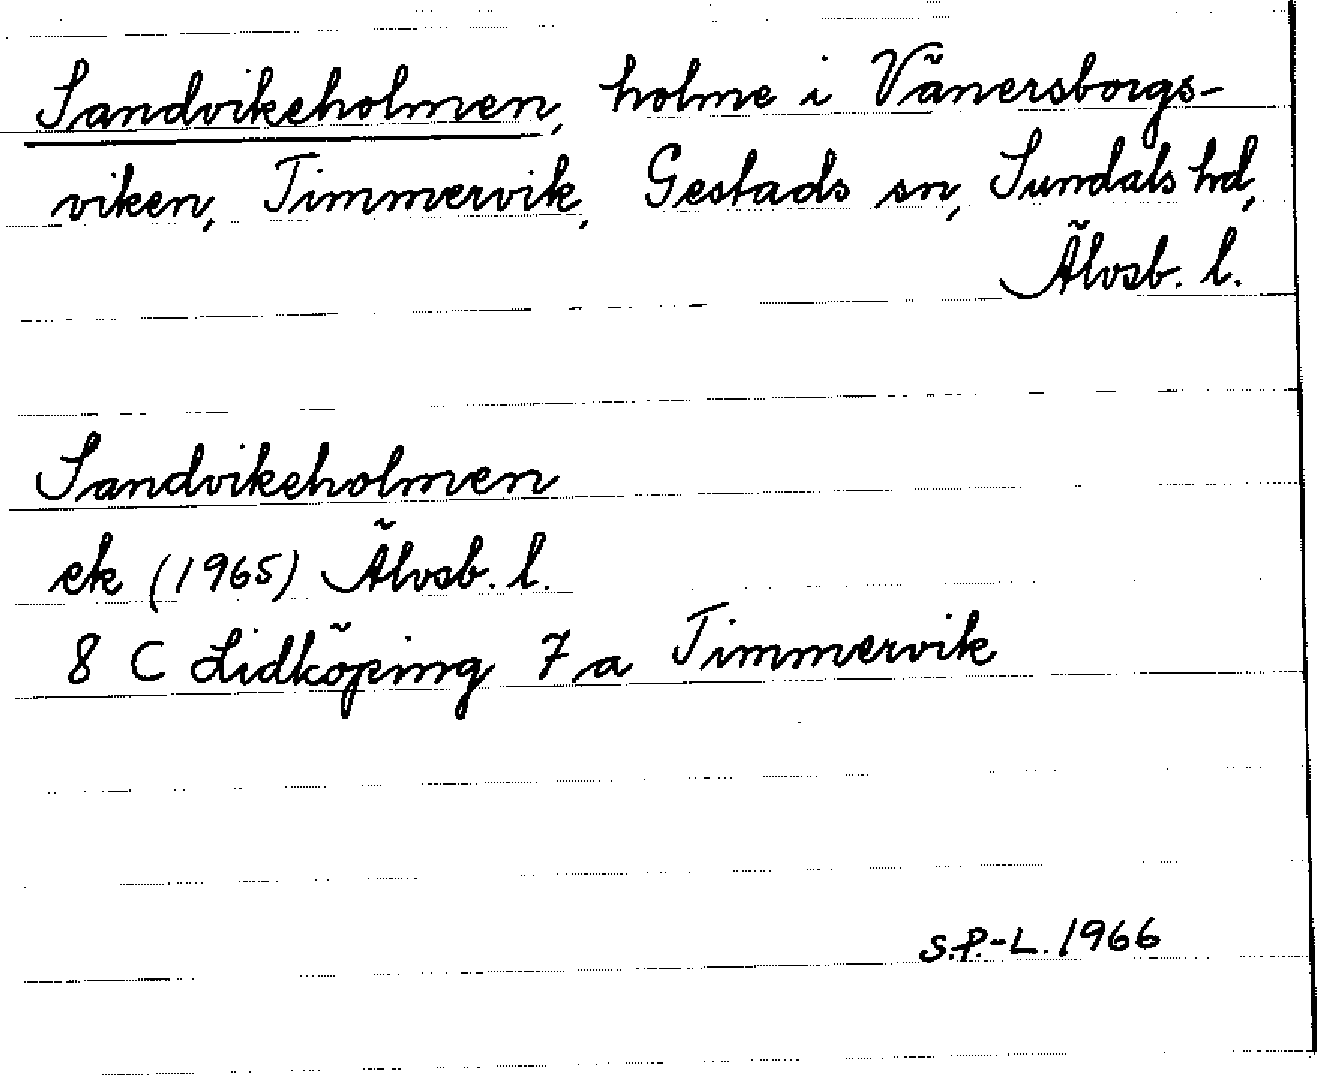 Sandvikeholmen, holme i Vänersborgs-
viken, Timmervik, Gestads sn, Sundals hd,
Älvsb. l.
Sandvikeholmen
ek (1965) Älvsb. l.
8 C Lidköping 7 a Timmervik
S.P.-L. 1966